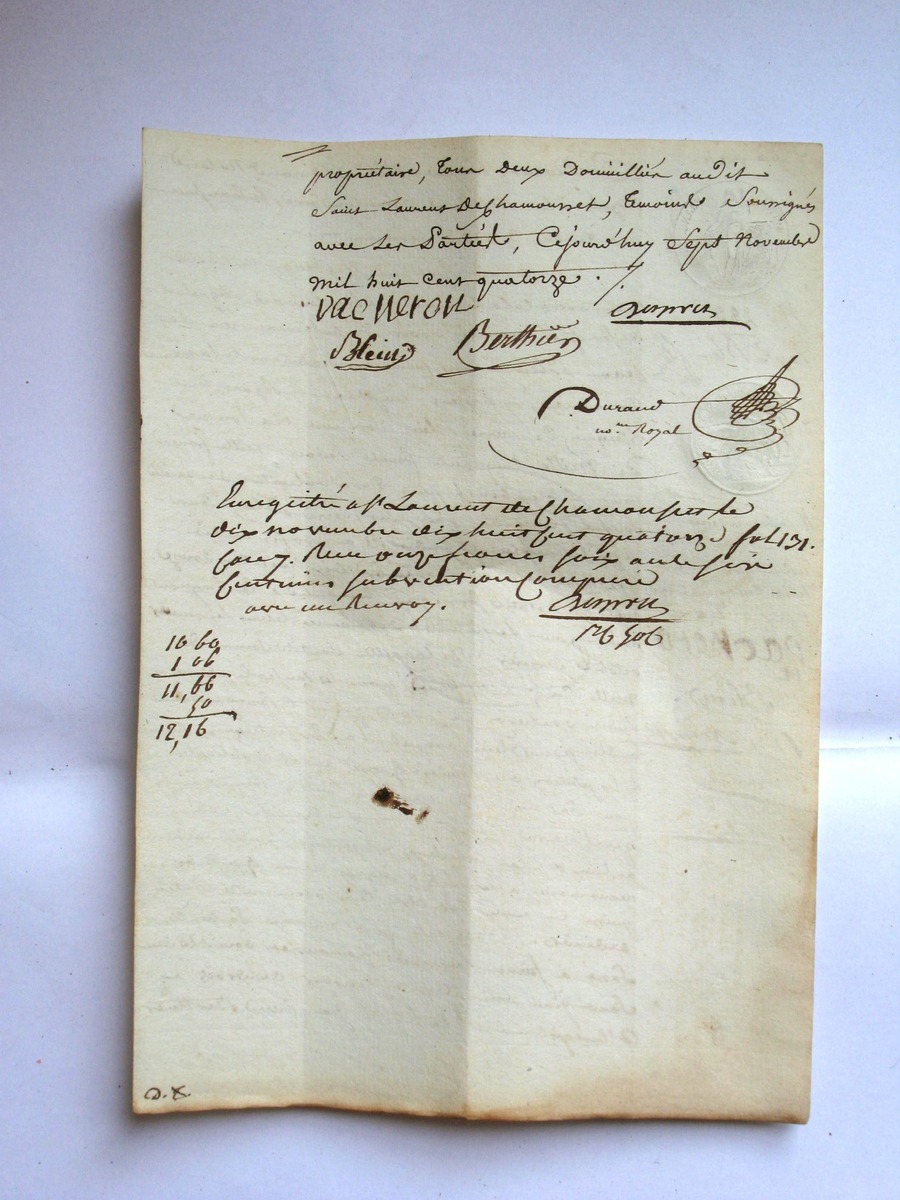 propriétaire, tous deux Domicilliés audit
Saint Laurent DeChamousset, témoins Soussignés
avec Les Parties, Cejourd'huy Sept Novembre
mil huit cent quatorze ./.
vacheron
Blein Berthier
Durand
no.re Royal
Enregistré a St Laurent de Chamousset le
dix novembre dix huit cent quatorze fol 131.
Reçu onze francs soix ante six
Centimes subvention Comprise
avec un Renvoy.
10 60
1 06
11,66
50
12,16